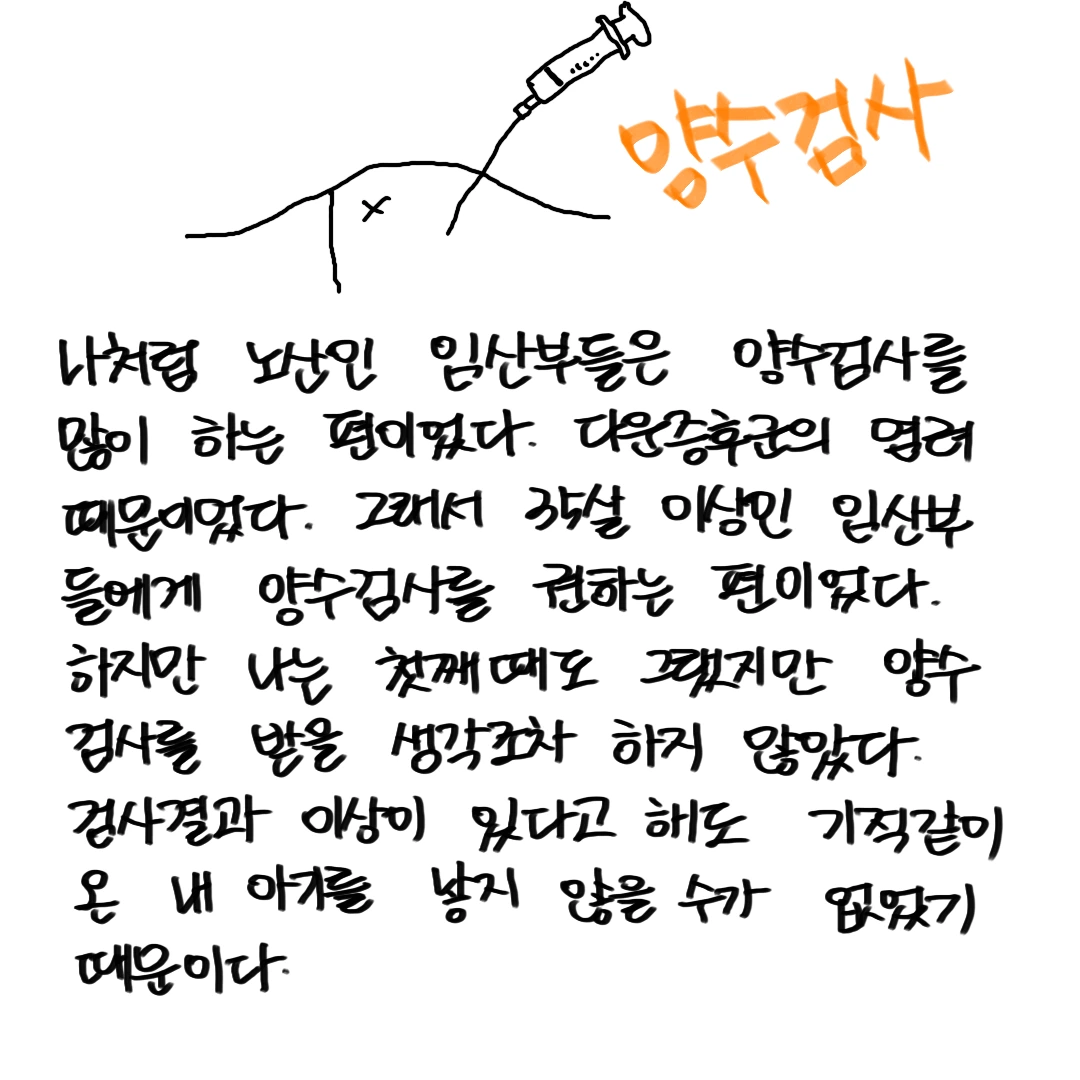 양수검사
나처럼 노산인 임산부들은 양수검사를
많이 하는 편이었다. 다운증후군의 염려
때문이었다. 그래서 35살 이상인 임산부
들에게 양수검사를 권하는 편이었다.
하지만 나는 첫째때도 그랬지만 양수
검사를 받을 생각조차 하지 않았다.
검사결과 이상이 있다고 해도 기적같이
온 내 아가를 낳지 않을 수가 없었기
때문이다.